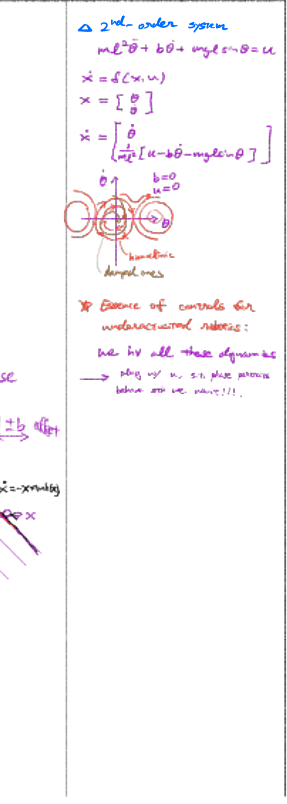 △ 2nd-order system
ml²θ̈ + bθ̇ + mglsinθ = u
ẋ = f(x,u)
x = [θ θ̇]
ẋ = [θ̇
1/ml² [u-bθ̇-mglsinθ]]
θ̇
b=0
u=0
θ
homoclinic
damped ones
Essence of controls for
underactuated robotics:
we hv all these dynamics
→ plug w/ u, s.t. phase portraits
behave we want!!!.
se
±b effect
x